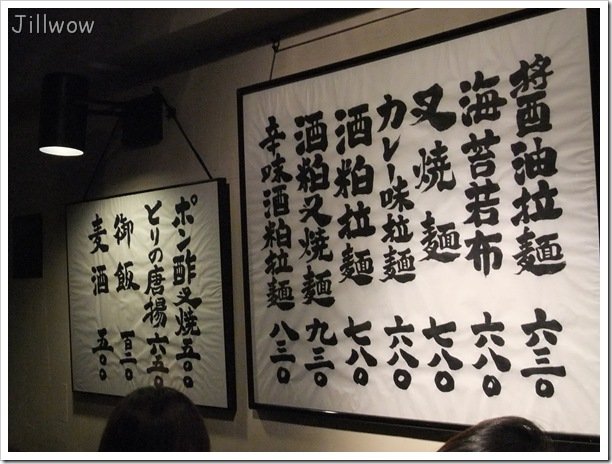 Jillwow
醤油拉麺 六三〇
海苔若布 六八〇
叉焼麺 七八〇
カレー味拉麺 六八〇
酒粕拉麺 七八〇
酒粕叉焼麺 九三〇
辛味酒粕拉麺 八三〇
ポン酢叉焼 五〇〇
とりの唐揚 六五〇
御飯 百二〇
麦酒 五〇〇